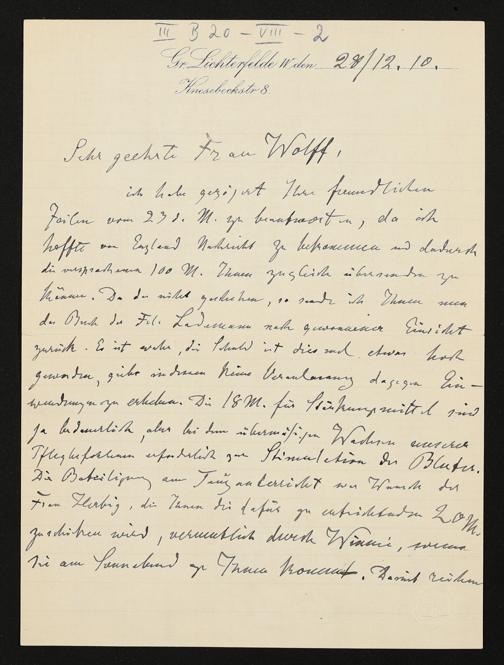 III B 20 - VIII - 2
Gr. Lichterfelde W. den 28/12. 10.
Knesebeckstr. 8.
Sehr geehrte Frau Wolff,
ich habe gezögert Ihre freundlichen
Zeilen vom 23 d. M. zu beantworten, da ich
hoffte von England Nachricht zu bekommen und dadurch
die versprochenen 100 M. Ihnen zugleich übersenden zu
können. Da dies nicht geschehen, so sende ich Ihnen nun
das Buch der Frl. Lademann nach genommener Einsicht
zurück. Es ist wahr, die Schuld ist dies mal etwas hoch
geworden, giebt indessen keine Veranlassung dagegen Ein-
wendungen zu erheben. Die 18 M. für Stärkungsmittel sind
ja bedauerlich, aber bei dem übermäßigen Wachsen unserer
Pflegbefohlenen erforderlich zur Stimulation des Blutes.
Die Beteiligung am Tanzunterricht war Wunsch der
Frau Herbig, die Ihnen die dafür zu entrichtenden 20 M.
zuschicken wird, vermutlich durch Winnie, wenn
sie am Sonnabend zu Ihnen kommt. Damit